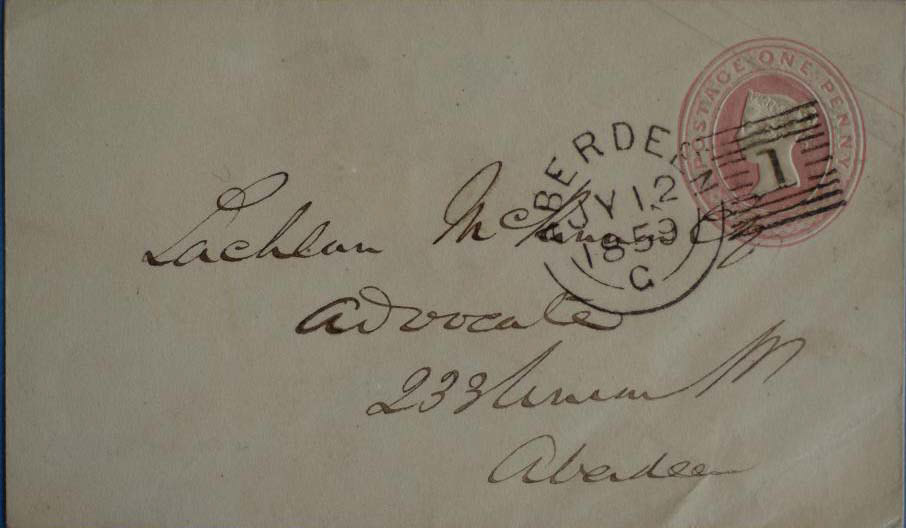 POSTAGE ONE PENNY
ABERDEEN
1
JY 12
1859
G
Lachlan McKinnon
Advocate
233 Union St
Aberdeen